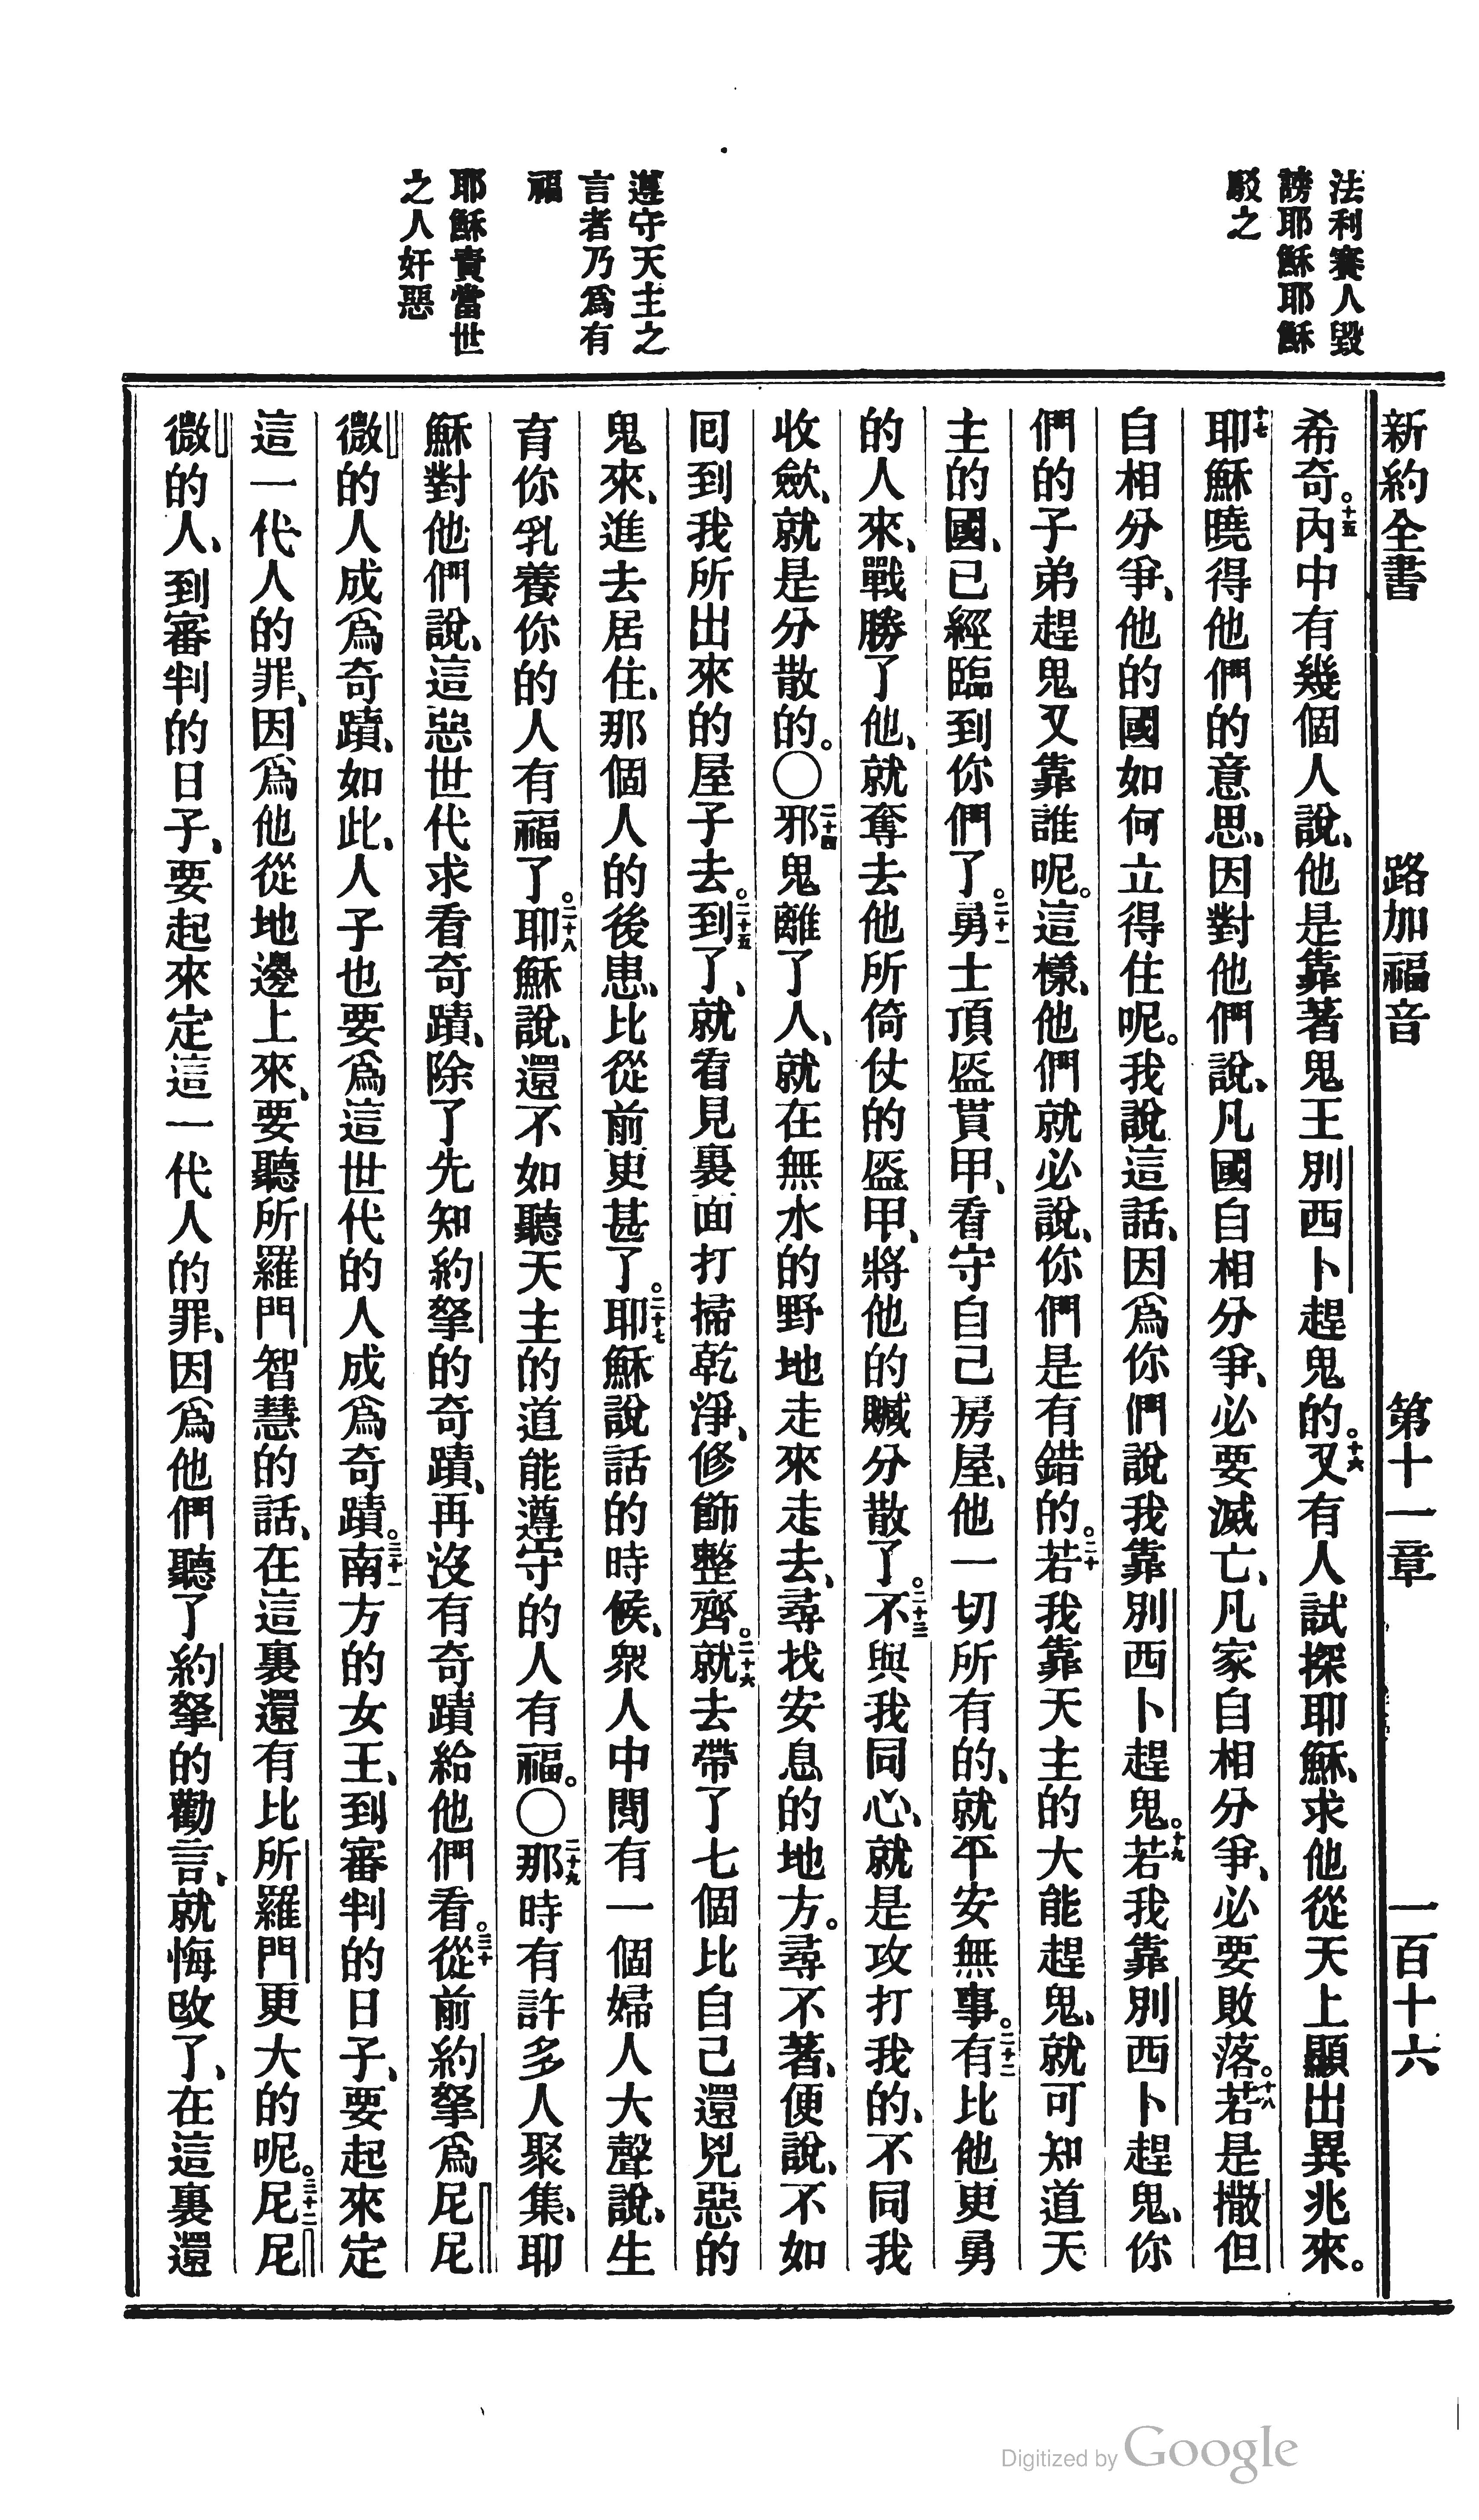 新約全書 路加福音 第十一章 一百十六
法利賽人毀
謗耶穌耶穌
駁之
遵守天主之
言者乃爲有
福
耶穌責當世
之人奸惡
希奇。十五內中有幾個人說、他是靠著鬼王別西卜趕鬼的。十六又有人試探耶穌、求他從天上顯出異兆來。
十七耶穌曉得他們的意思、因對他們說、凡國自相分爭、必要滅亡、凡家自相分爭、必要敗落。十八若是撒但
自相分爭、他的國如何立得住呢。我說這話、因爲你們說我靠別西卜趕鬼。十九若我靠別西卜趕鬼、你
們的子弟趕鬼又靠誰呢。這樣、他們就必說、你們是有錯的。二十若我靠天主的大能趕鬼、就可知道天
主的國、已經臨到你們了。二十一勇士頂盔貫甲、看守自己房屋、他一切所有的、就平安無事。二十二有比他更勇
的人來、戰勝了他、就奪去他所倚仗的盔甲、將他的贓分散了。二十三不與我同心、就是攻打我的、不同我
收斂、就是分散的。〇二十四邪鬼離了人、就在無水的野地走來走去、尋找安息的地方。尋不著、便說、不如
囘到我所出來的屋子去。二十五到了、就看見裏面打掃乾淨、修飾整齊。二十六就去帶了七個比自己還兇惡的
鬼來、進去居住、那個人的後患、比從前更甚了。二十七耶穌說話的時候、衆人中間有一個婦人大聲說、生
育你乳養你的人有福了。二十八耶穌說、還不如聽天主的道能遵守的人有福。〇二十九那時有許多人聚集、耶
穌對他們說、這惡世代求看奇蹟、除了先知約拏的奇蹟、再沒有奇蹟給他們看。三十從前約拏爲尼尼
微的人成爲奇蹟、如此、人子也要爲這世代的人成爲奇蹟。三十一南方的女王、到審判的日子、要起來定
這一代人的罪、因爲他從地邊上來、要聽所羅門智慧的話、在這裏還有比所羅門更大的呢。三十二尼尼
微的人、到審判的日子、要起來定這一代人的罪、因爲他們聽了約拏的勸言、就悔改了、在這裏還
Digitized by Google